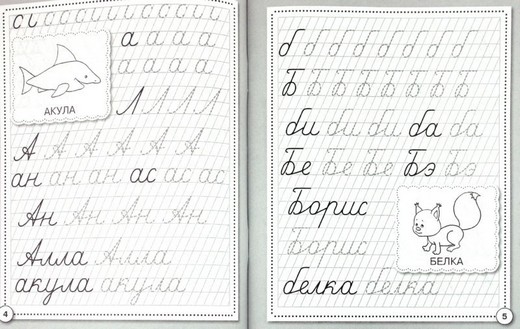 а а а а
а а а а
АКУЛА
Л Л Л Л
А А А А А А
ан ан ан ас ас ас
Ан Ан Ан Ан
Алла Алла
акула акула
4
б б б б б б б б
Б Б Б Б Б Б Б Б
би би би ба ба
Бе Бе Бе Бэ Бэ
Борис
Борис
БЕЛКА
белка белка
5